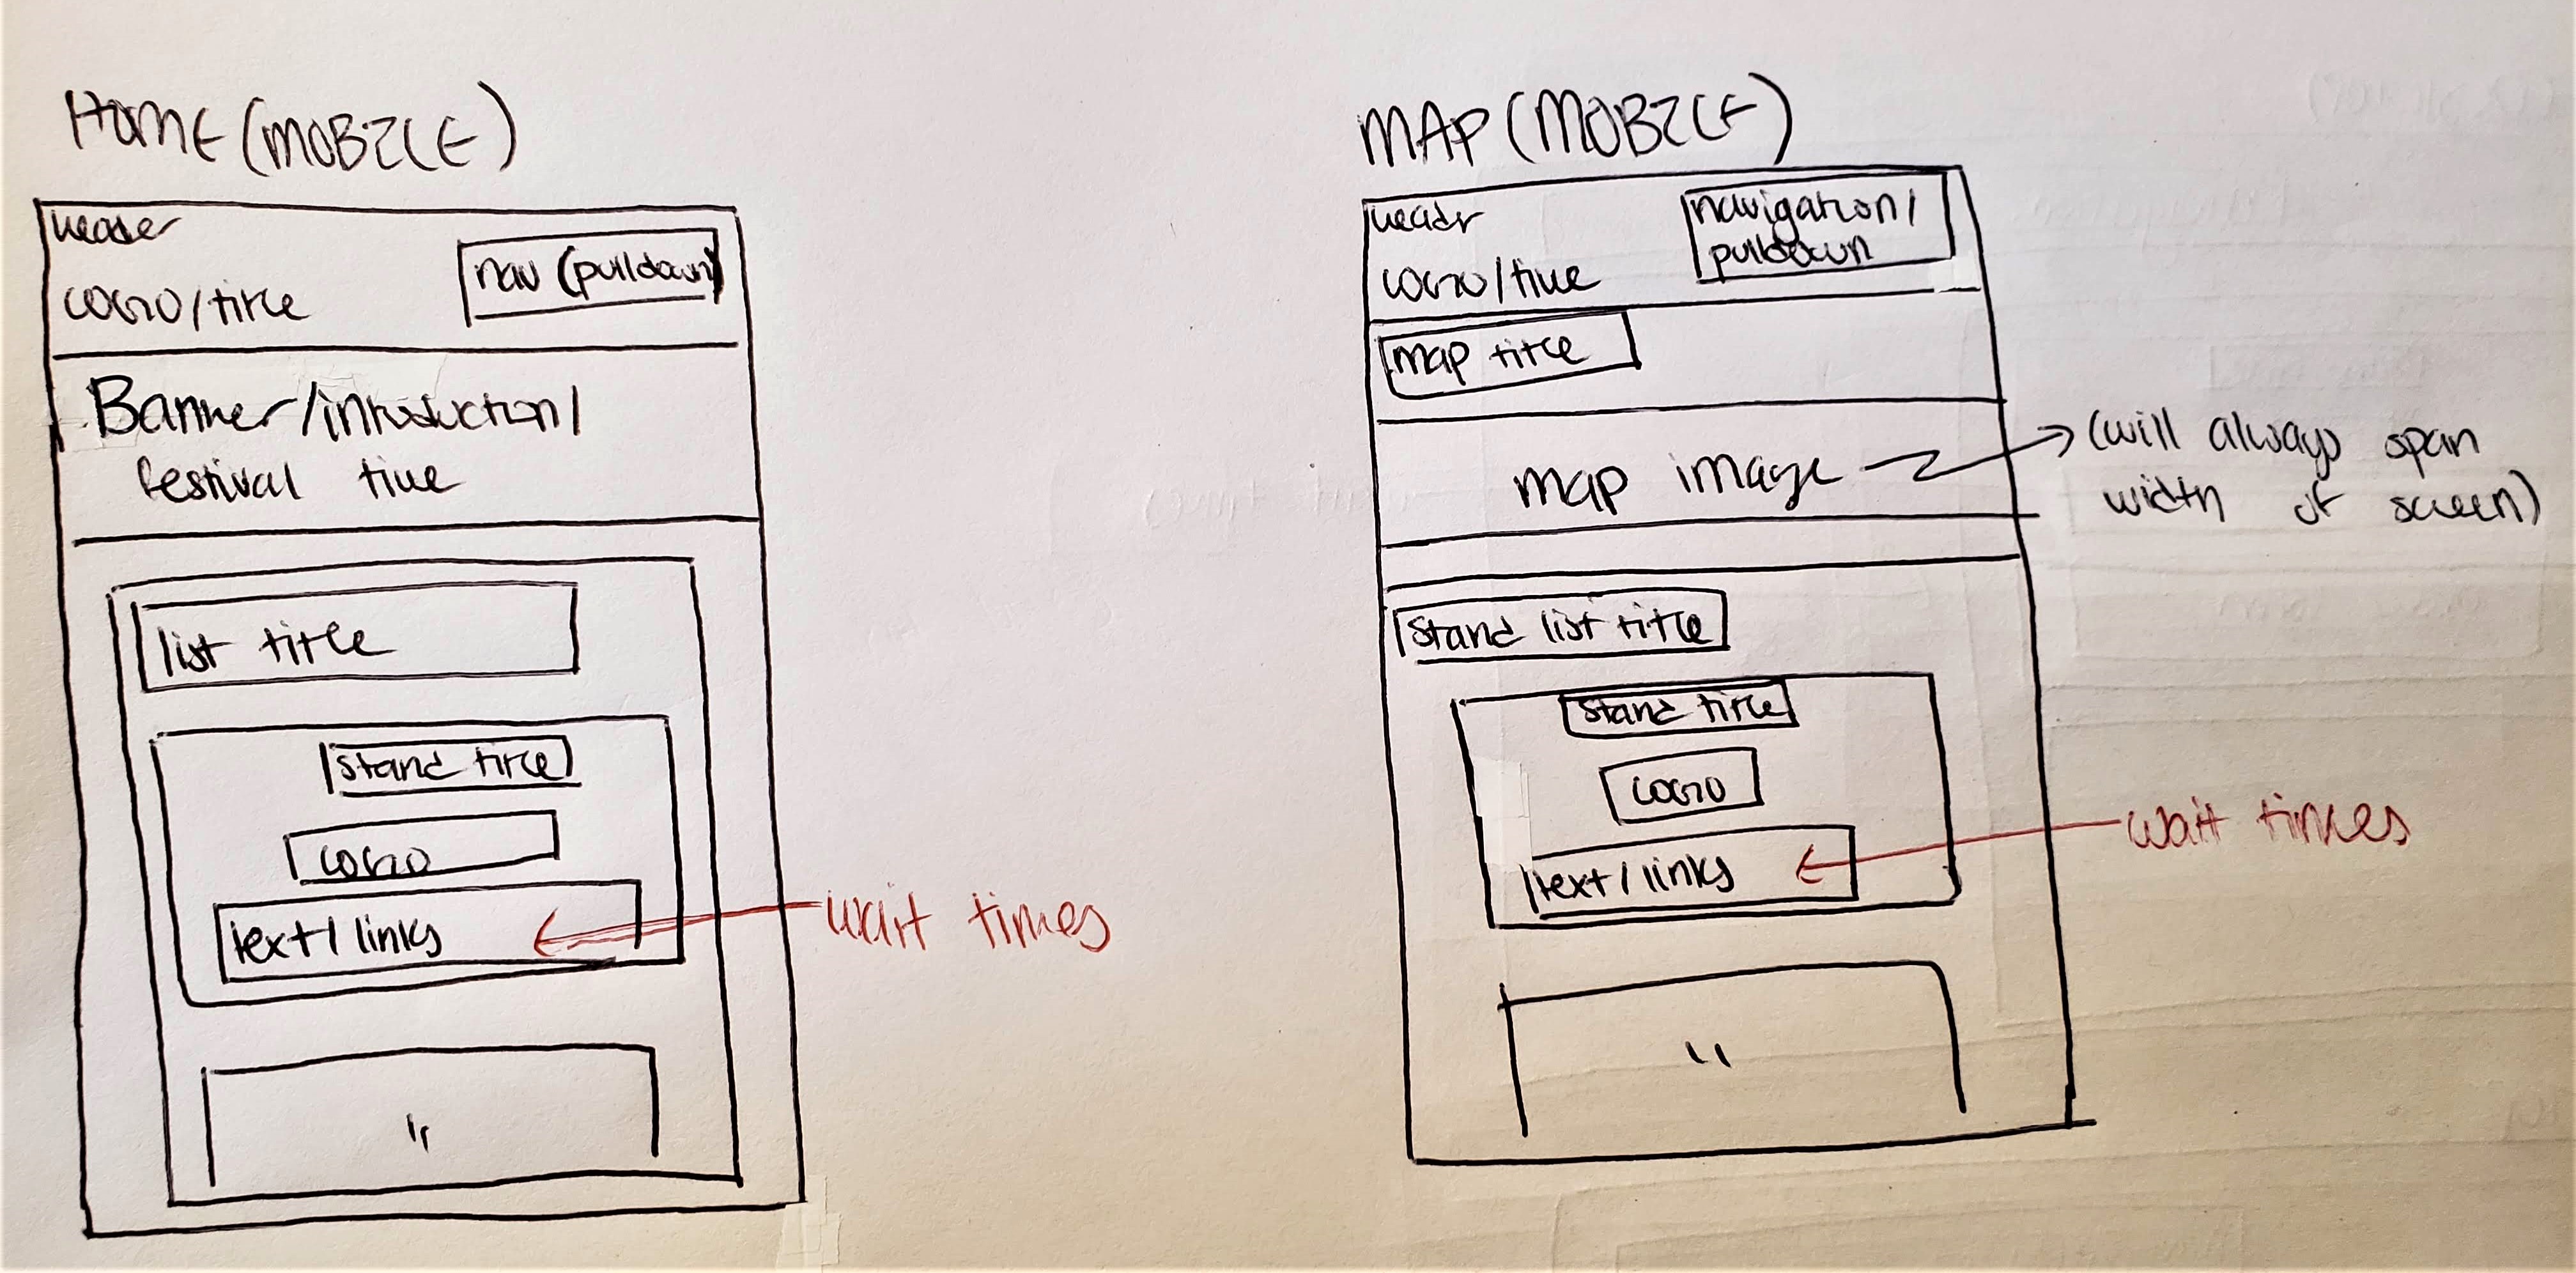 HOME (MOBILE)
header
LOGO/title
nav (pulldown)
Banner/introduction/
festival title
list title
stand title
LOGO
text/links
wait times
"
MAP (MOBILE)
header
LOGO/title
navigation/
pulldown
map title
map image
(will always span
width of screen)
stand list title
stand title
LOGO
text/links
wait times
"